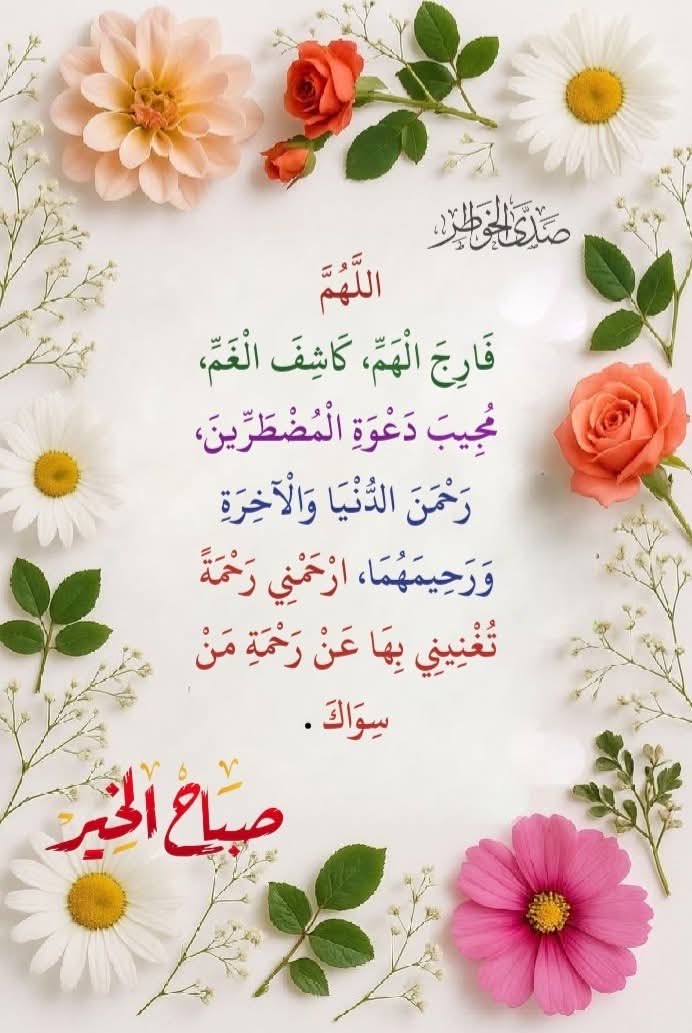 صَدَى الخَوَاطِر
اللَّهُمَّ
فَارِجَ الْهَمِّ، كَاشِفَ الْغَمِّ،
مُجِيبَ دَعْوَةِ الْمُضْطَرِّينَ،
رَحْمَنَ الدُّنْيَا وَالْآخِرَةِ
وَرَحِيمَهُمَا، ارْحَمْنِي رَحْمَةً
تُغْنِينِي بِهَا عَنْ رَحْمَةِ مَنْ
سِوَاكَ .
صباح الخير